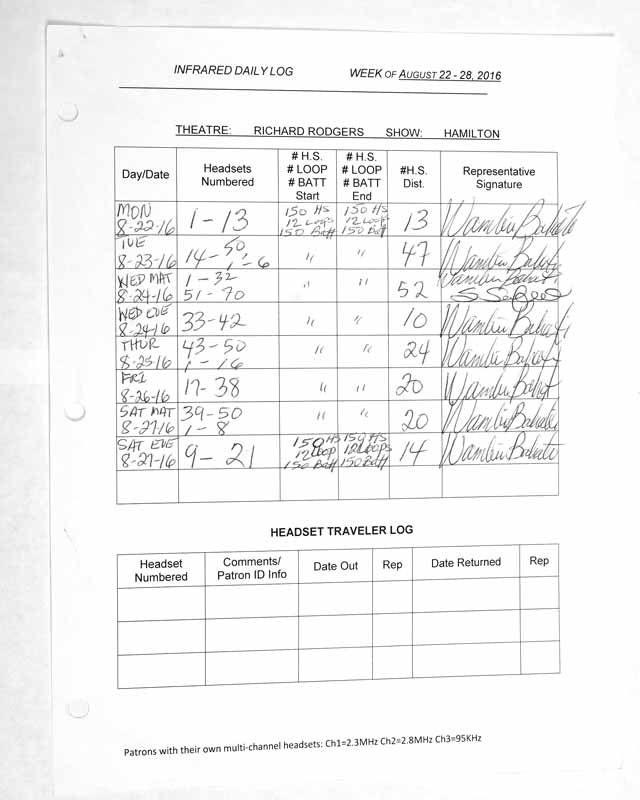 INFRARED DAILY LOG WEEK OF AUGUST 22 - 28, 2016
THEATRE: RICHARD RODGERS SHOW: HAMILTON
Day/Date Headsets Numbered # H.S. # LOOP # BATT Start # H.S. # LOOP # BATT End #H.S. Dist. Representative Signature
MON 8-22-16 1-13 150 HS 12 Loops 150 Batt 150 HS 12 Loops 150 Batt 13
TUE 8-23-16 14-50 1-6 " " 47
WED MAT 8-24-16 1-32 51-70 " " 52
WED EVE 8-24-16 33-42 " " 10
THUR 8-25-16 43-50 1-16 " " 24
FRI 8-26-16 17-38 " " 20
SAT MAT 8-27-16 39-50 1-8 " " 20
SAT EVE 8-27-16 9-21 150 HS 12 Loop 150 Batt 150 HS 12 Loops 150 Batt 14
HEADSET TRAVELER LOG
Headset Numbered Comments/ Patron ID Info Date Out Rep Date Returned Rep
Patrons with their own multi-channel headsets: Ch1=2.3MHz Ch2=2.8MHz Ch3=95KHz